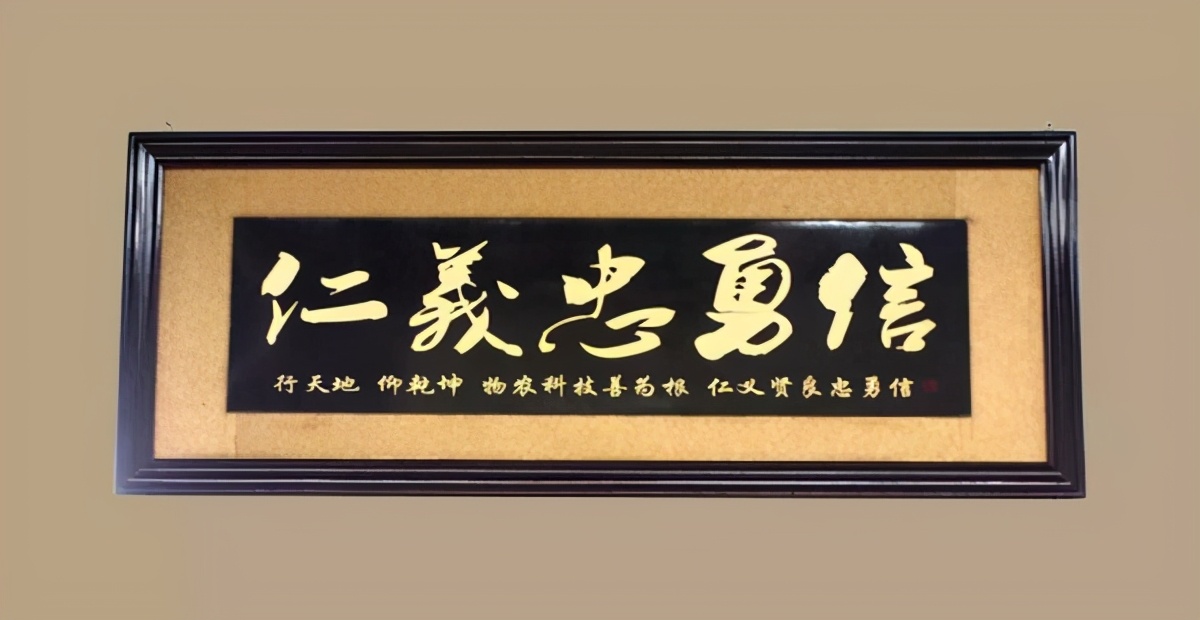 仁義忠勇信
行天地 仰乾坤 物农科技善为根 仁义贤良忠勇信